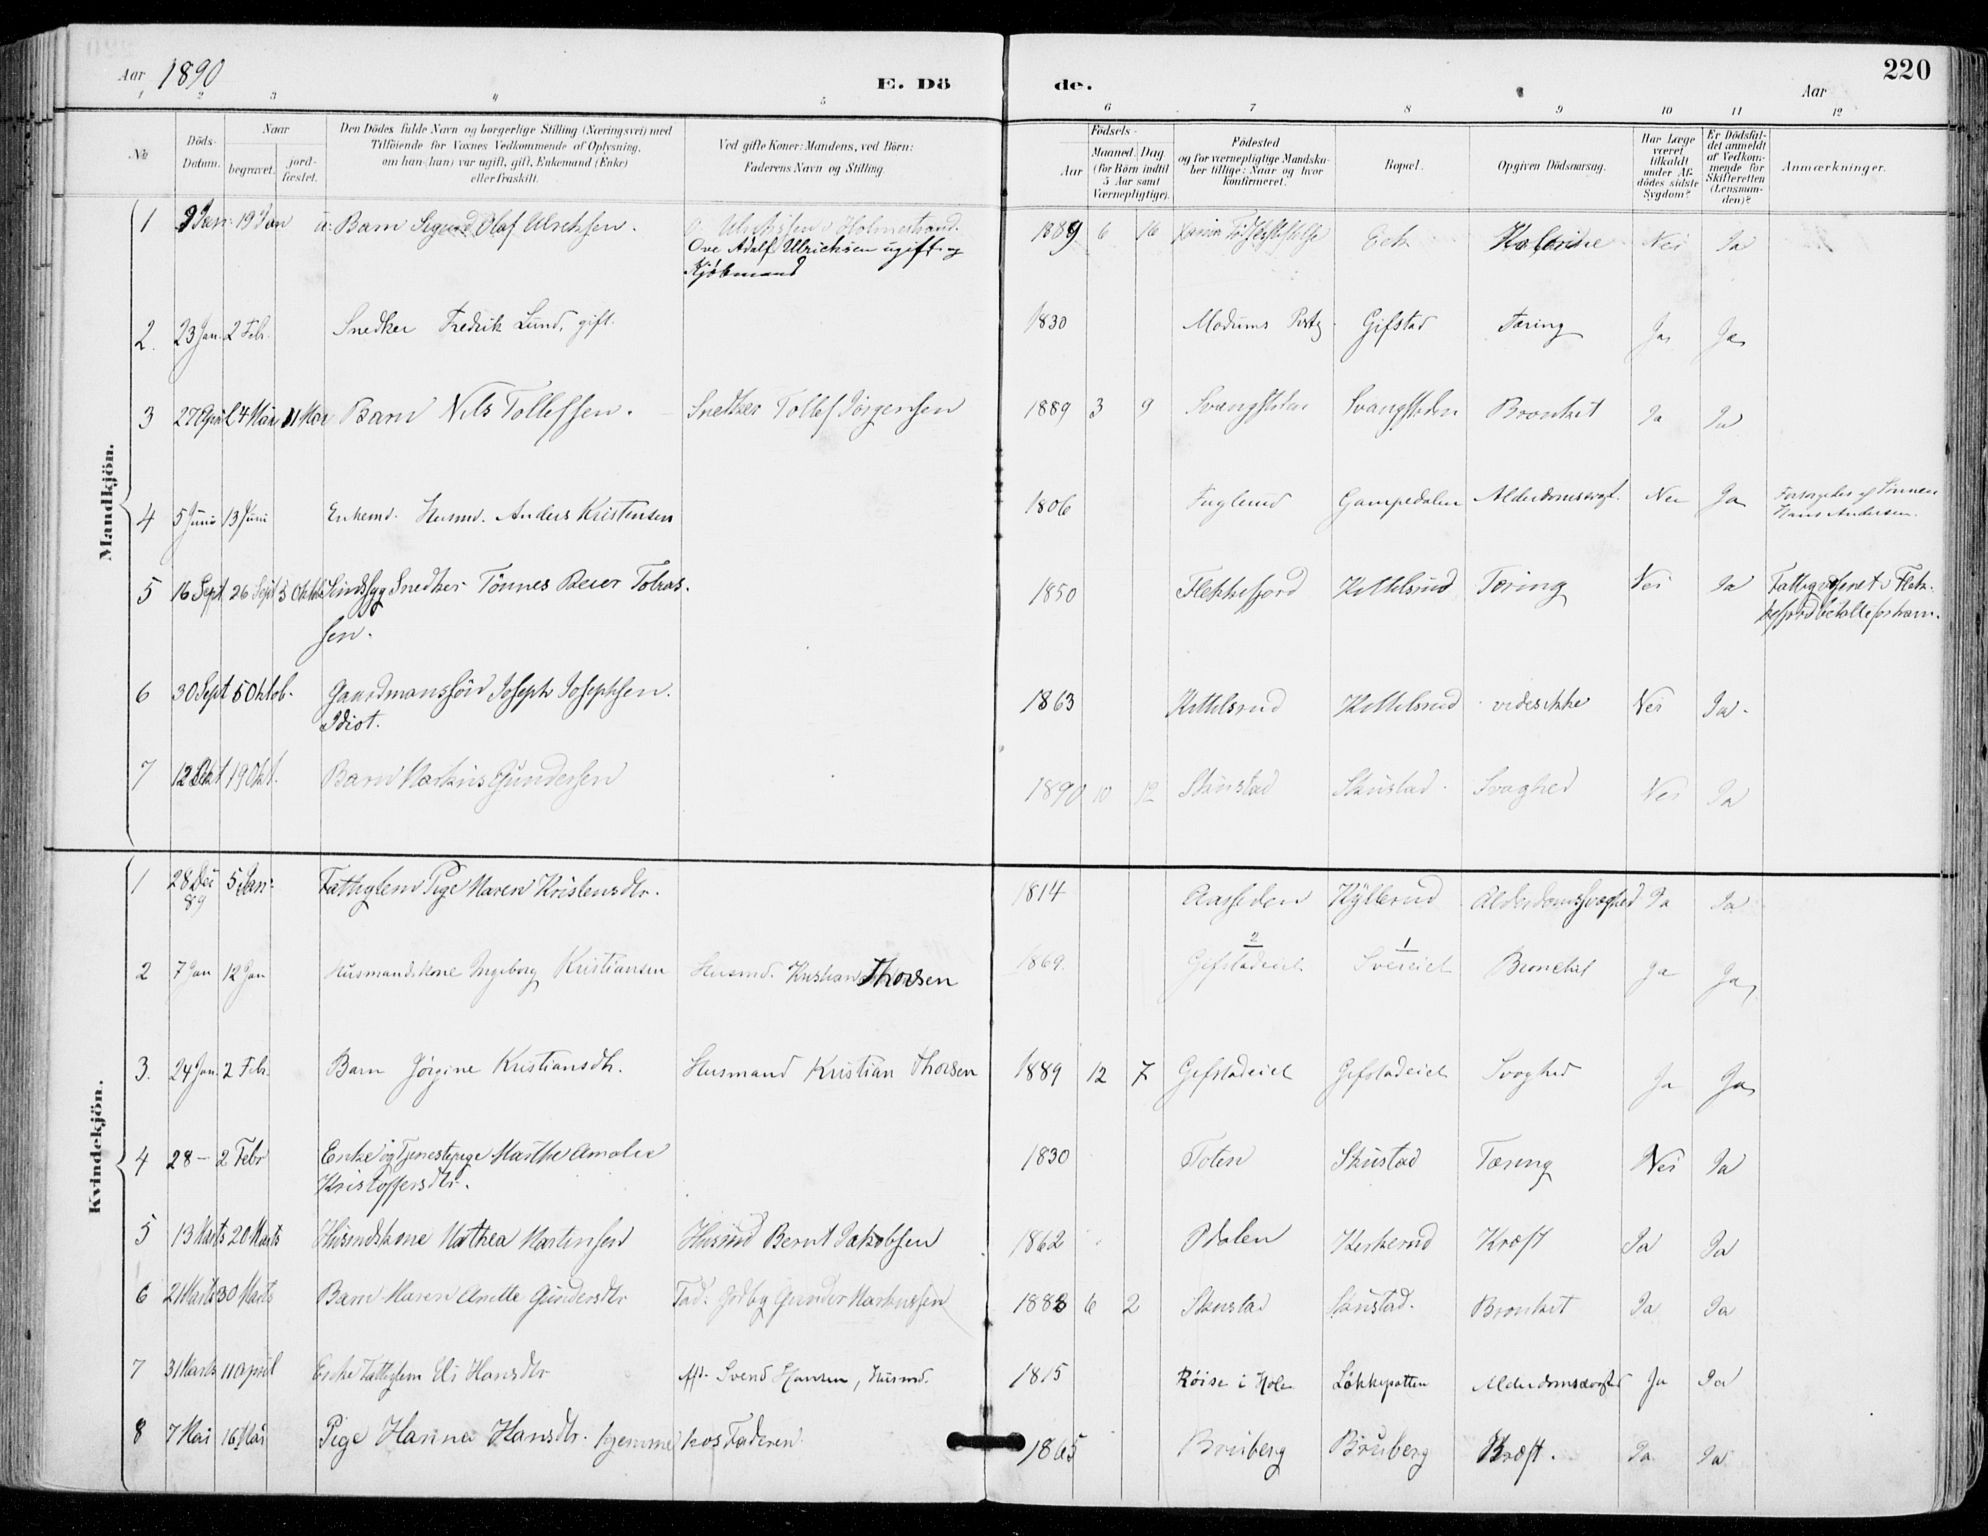 Aar 1890
E. Döde.
Aar
220
1 2 3 4 5 6 7 8 9 10 11 12
No
Döds-Datum.
Naar
begravet.
jord-fæstet.
Den Dödes fulde Navn og borgerlige Stilling (Næringsvei) med
Tilföiende for Voxnes Vedkommende af Oplysning,
om han (hun) var ugift, gift, Enkemand (Enke)
eller fraskilt.
Ved gifte Koner: Mandens, ved Börn:
Faderens Navn og Stilling.
Födsels-
Aar
Maaned. Dag
(for Börn indtil
5 Aar samt
Værnepligtige).
Födested
og for værnepligtige Mandska-
ber tillige: Naar og hvor
konfirmeret.
Bopæl.
Opgiven Dödsaarsag.
Har Læge
været
tilkaldt
under Af-
dödes sidste
Sygdom?
Er Dödsfal-
det anmeldt
af Vedkom-
mende for
Skifteretten
(Lensman-
den)?
Anmærkninger.
Mandkjön.
1 9 Jan. 19 Jan Barn Sigurd Olaf Ulrichsen. Holmestrand. 1889 6 16 Eek Nei Ja
Ove Adolf Ullrichsen ugift og
Kjöbmand
2. 23 Jan. 2 Febr. Snedker Fredrik Lund, gift. 1830 Modums Gifstad Tæring Ja Ja
3 27 April 4 Mai 11 Mai Barn Nils Tollefsen. Snedker Tollef Jörgensen 1889 3 9 Svangstaden Svangstaden Bronkit Ja Ja
4 5 Juni 13 Juni Enkemd. Husmd. Anders Kristensen 1806 Fuglerud Gampedalen Alderdomssvagh. Nei Ja Forsørgedes af Sønnen
Hans Andersen.
5 16 Sept 26 Sept 3 Oktob Sindssyg Snedker Tönnes Beier Tobias-
sen. 1850 Flekkefjord Kittelsrud Tæring Nei Ja Fattigvæsenet i Flek-
kefjord betalte for ham.
6 30 Sept 5 Oktob. Gaardmanssön Joseph Josephsen.
Idiot. 1863 Kittelsrud Kittelsrud vides ikke Nei Ja.
7 12 Okt 19 Okt. Barn Markus Gundersen 1890 10 12 Skustad Skustad Svaghed Nei Ja
Kvindekjön.
1 28 Dec 89 5 Jan. Fattiglem Pige Maren Kristensdtr. 1814 Aasseden Kyllerud Alderdomssvaghed Ja Ja
2 7 Jan 12 Jan Husmandskone Ingeborg Kristiansen Husmd. Kristian Thorsen 1869. Gifstadeiet Sveeeiet Bronchit Ja Ja
3. 24 Jan. 2 Febr. Barn Jörgine Kristiansdtr. Husmand Kristian Thorsen 1889 12 7 Gifstadeiet Gifstadeiet Svaghed Ja Ja
4 28 – 2 Febr Enke og Tjenestepige Marthe Amalie
Kristoffersdtr. 1830 Toten Skustad Tæring Nei Ja
5 13 Marts 20 Marts Husmdskone Mathea Martinsen Husmd Bernt Jakobsen 1862 Odalen Keskerud Kræft Ja Ja
6 21 Marts 30 Marts Barn Maren Anette Gundersdtr Fad. Gunder Markussen 1888 6 2 Skustad Skustad. Bronkit Ja Ja
7 31 Marts 11 April Enke Fattiglem Eli Hansdtr Afd. Svend Hansen, Husmd. 1815 Röise i Hole Løkkepotten Alderdomssvaghed Ja Ja
8 7 Mai 16 Mai Pige Hanna Hansdtr. hjemme hos Faderen 1865 Bruberg Bruberg Kræft. Ja Ja